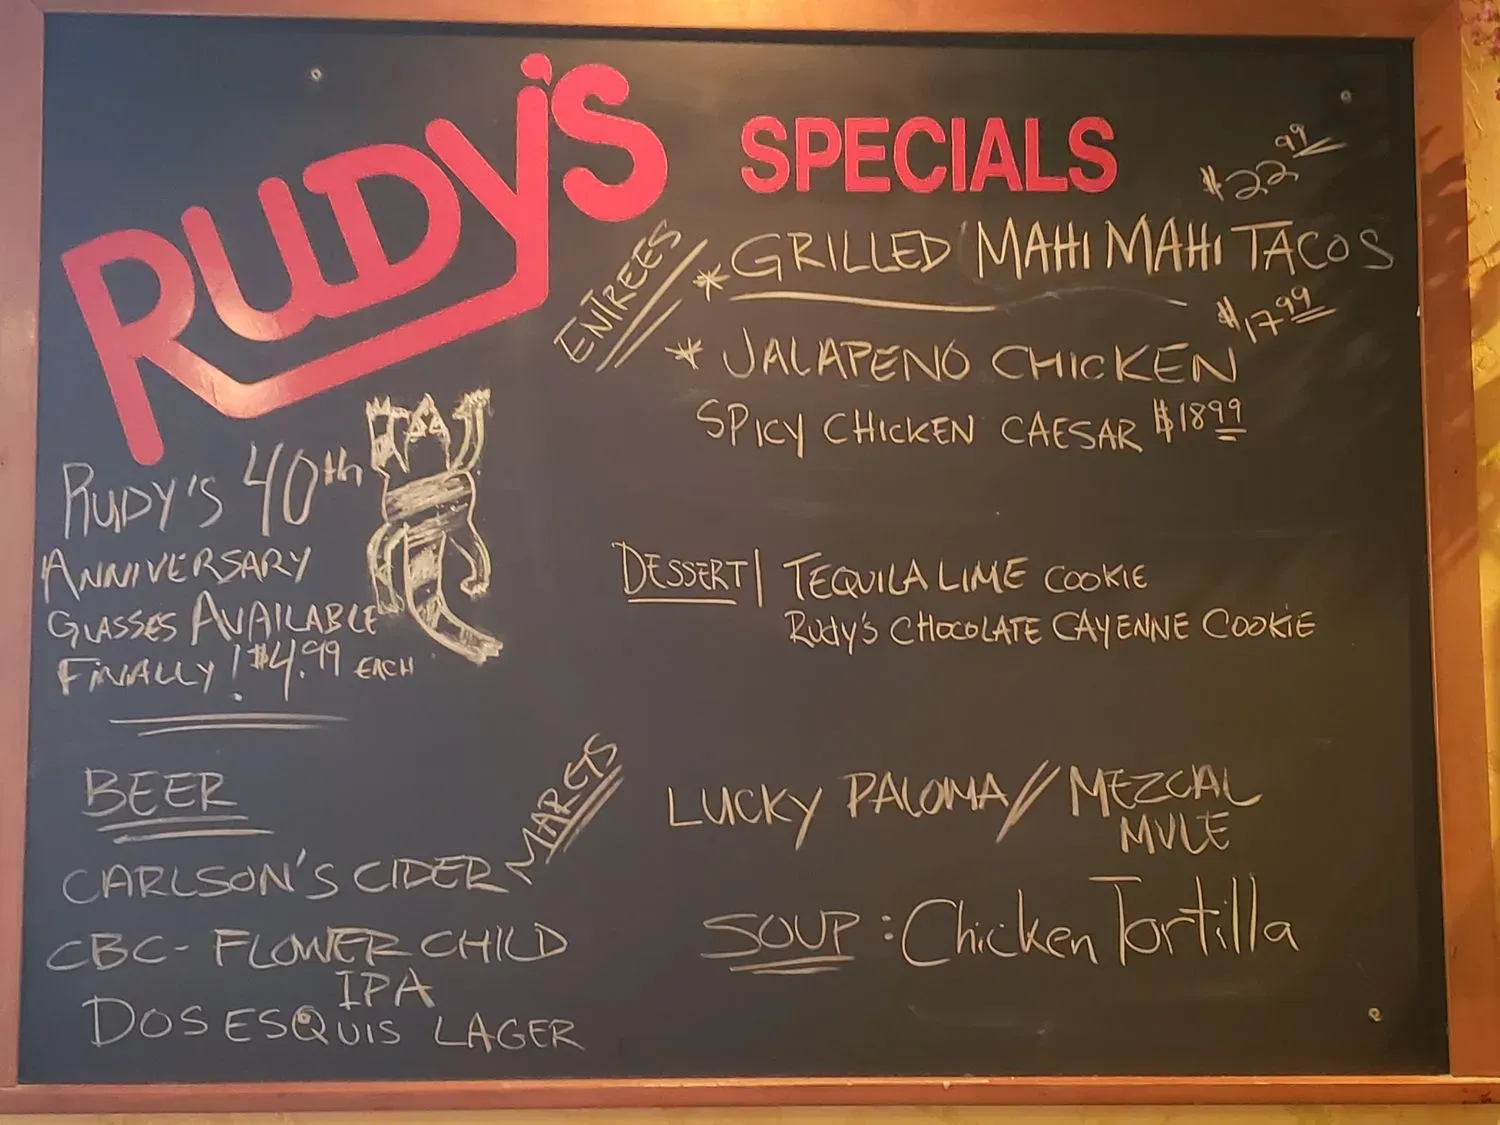 RUDY'S
SPECIALS
ENTREES
$22.99
* GRILLED MAHI MAHI TACOS
$17.99
* JALAPENO CHICKEN
SPICY CHICKEN CAESAR $18.99
RUDY'S 40th
ANNIVERSARY
GLASSES AVAILABLE
FINALLY! $4.99 EACH
DESSERT | TEQUILA LIME COOKIE
RUdy'S CHOCOLATE CAYENNE COOKIE
BEER
CARLSON'S CIDER
CBC - FLOWER CHILD
IPA
DOS ESQUIS LAGER
MARGTS
LUCKY PALOMA // MEZCAL
MULE
SOUP: Chicken Tortilla